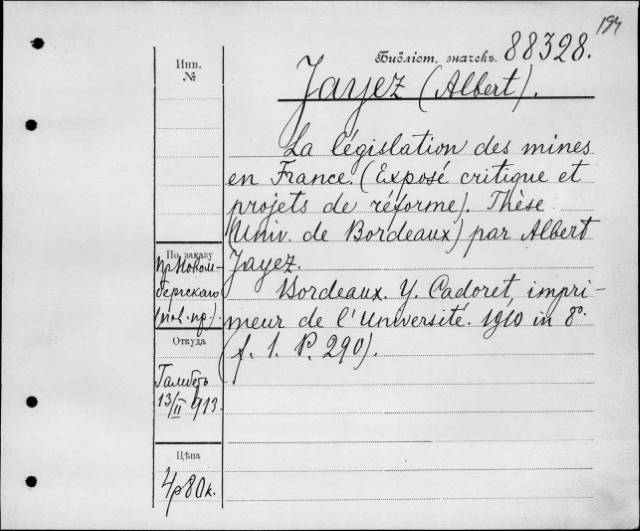 194
Инв. №
Библіот. значекъ. 88328.
Jayez (Albert).
La législation des mines
en France. (Exposé critique et
projets de réforme). Thèse
(Univ. de Bordeaux) par Albert
Jayez.
Bordeaux. Y. Cadoret, impri-
meur de l'Université. 1910 in 8º.
(f. 1. P. 290).
По заказу
пр. Новом-
бергскаго
Откуда
13/II 913.
Цѣна
4р80к.